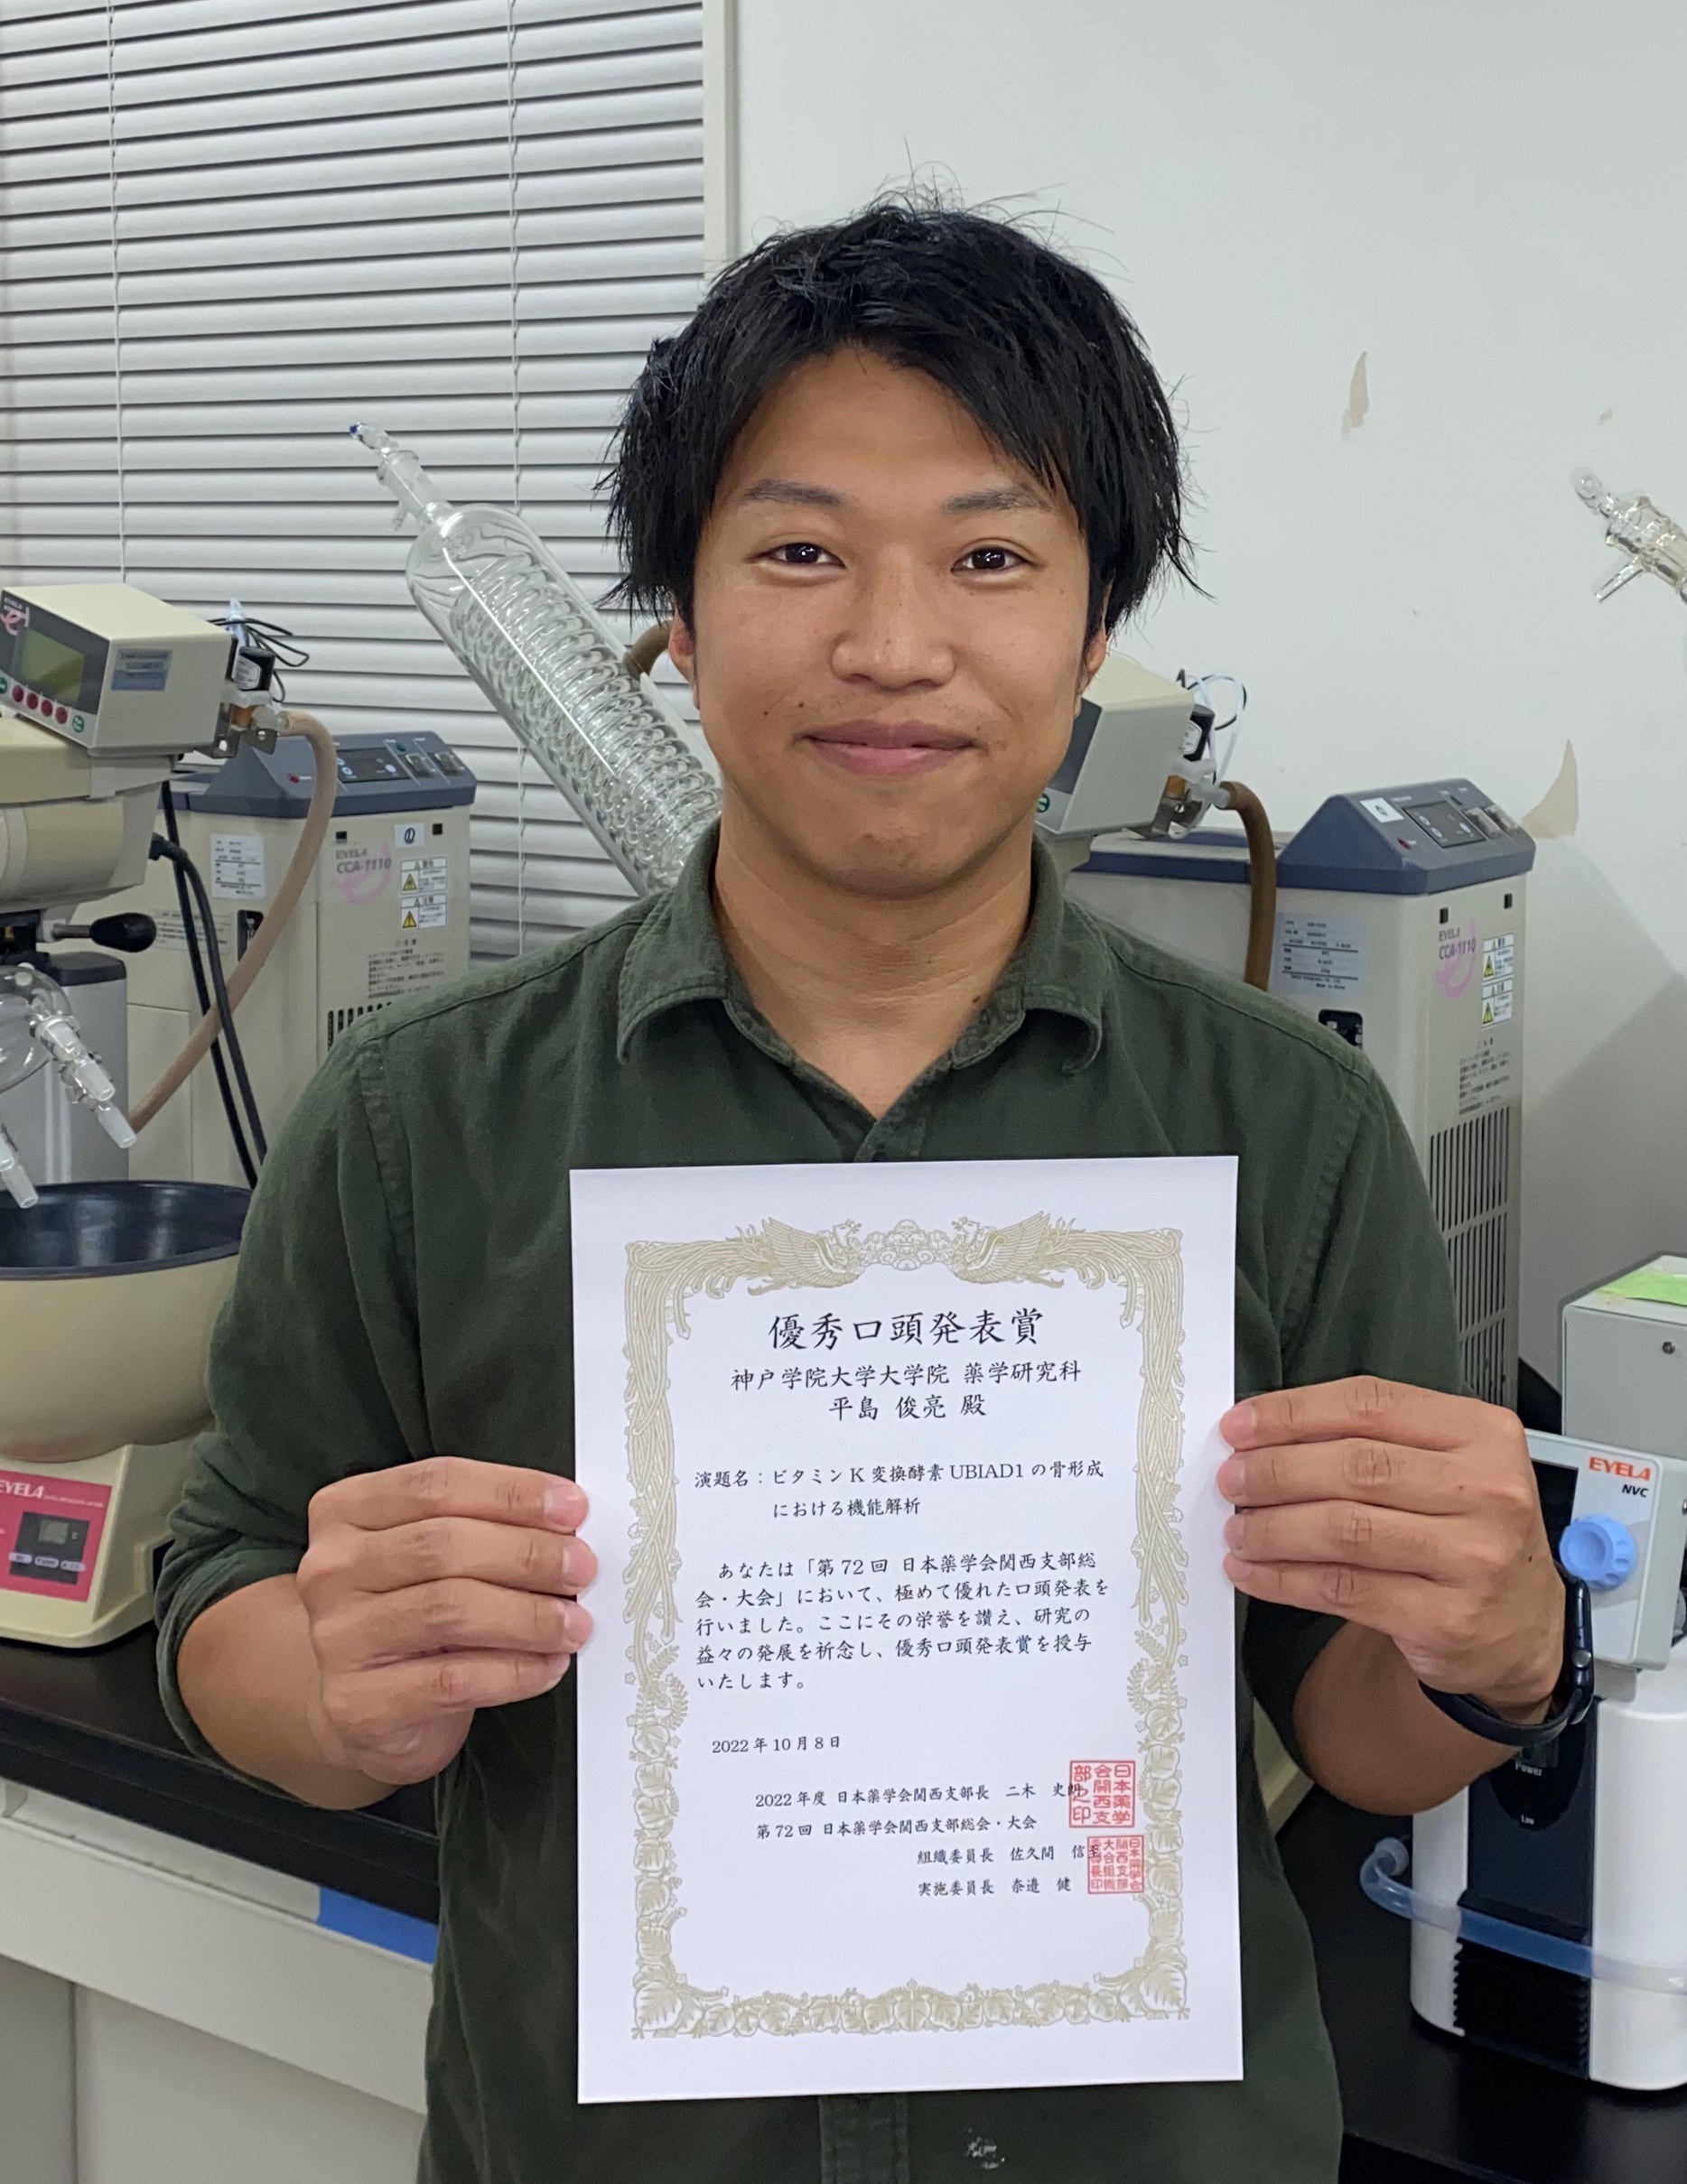 優秀口頭発表賞
神戸学院大学大学院 薬学研究科
平島 俊亮 殿
演題名：ビタミンK変換酵素UBIAD1の骨形成
における機能解析
あなたは「第72回 日本薬学会関西支部総
会・大会」において、極めて優れた口頭発表を
行いました。ここにその栄誉を讃え、研究の
益々の発展を祈念し、優秀口頭発表賞を授与
いたします。
2022年10月8日
2022年度 日本薬学会関西支部長 二木 史朗
第72回 日本薬学会関西支部総会・大会
組織委員長 佐久間 信至
実施委員長 奈邉 健
日本薬学会関西支部之印
EYELA
CCA-1110
①
警告
注意
EYELA
CCA-1110
EYELA
NVC
EYELA
Power